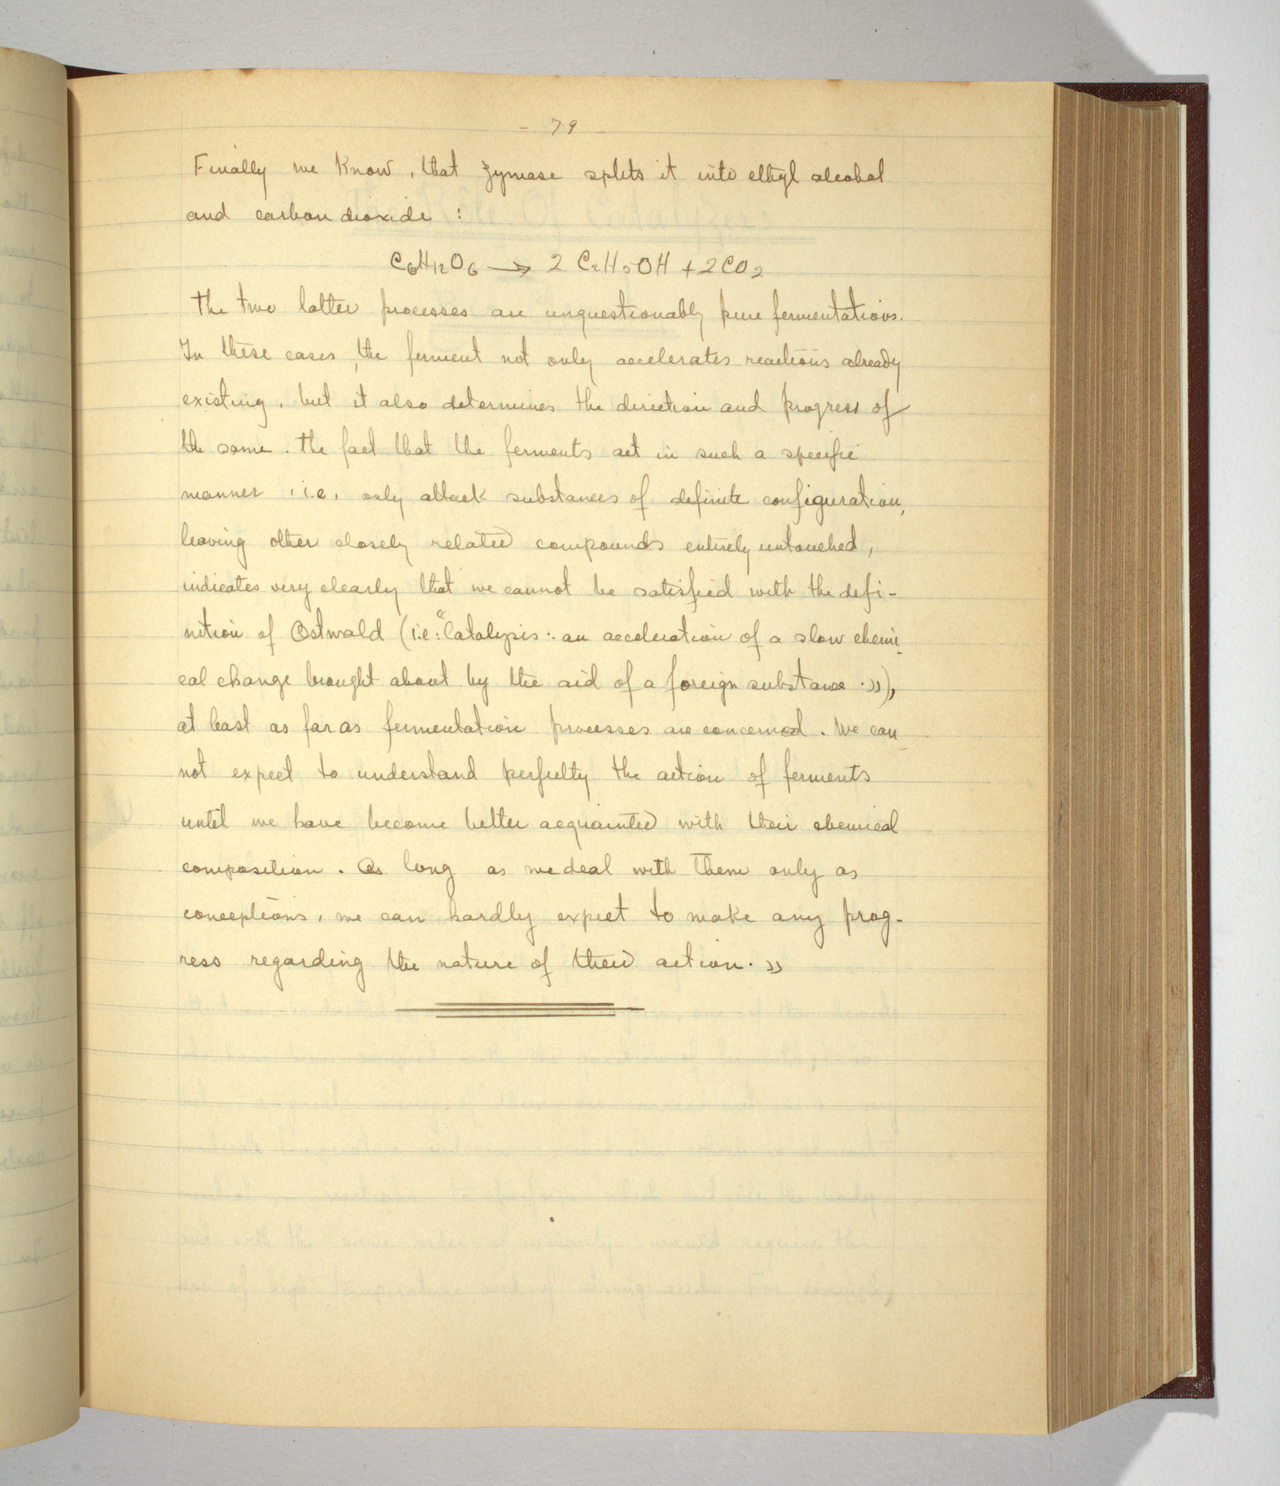 - 79 -
Finally we know, that zymase splits it into ethyl alcohol
and carbon dioxide :
C6H12O6 → 2 C2H5OH + 2CO2
The two latter processes are unquestionably pure fermentations.
In these cases, the ferment not only accelerates reactions already
existing, but it also determines the direction and progress of
the same. The fact that the ferments act in such a specific
manner, i.e, only attack substances of definite configuration,
leaving other closely related compounds entirely untouched,
indicates very clearly that we cannot be satisfied with the defi-
nition of Ostwald (i.e: "Catalysis: an acceleration of a slow chemi-
cal change brought about by the aid of a foreign substance.»),
at least as far as fermentation processes are concerned. We can
not expect to understand perfeclty the action of ferments
until we have become better acquainted with their chemical
composition. As long as we deal with them only as
conceptions, we can hardly expect to make any prog-
ress regarding the nature of their action.»